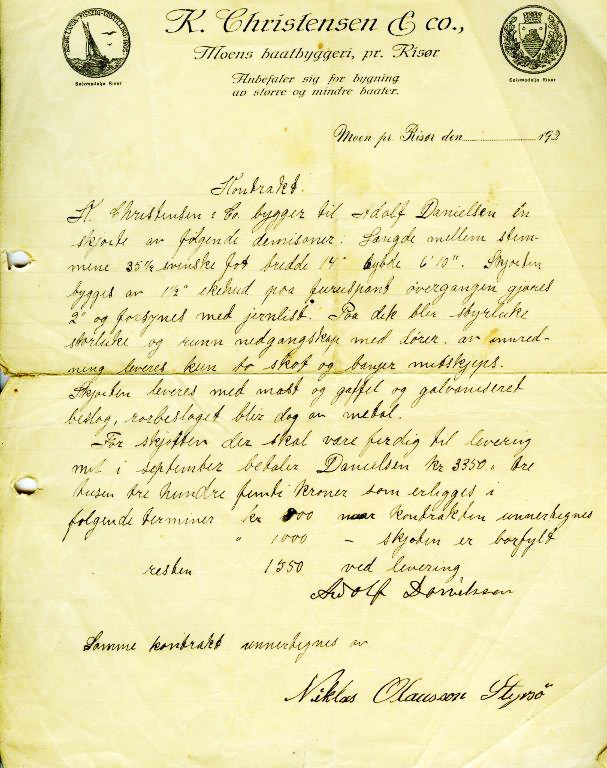 K. Christensen & co.,
Moens baatbyggeri, pr. Risør
Anbefaler sig for bygning
av større og mindre baater.
Sølvmedalje Risør
Sølvmedalje Risør
Moen pr. Risør den 192
Kontrakt.
K. Christensen & Co. bygger til Adolf Danielsen én
skjøite av følgende demisoner: Længde mellem stem-
mene 35½ svenske fot bredde 14" dybde 6'10". Skjøiten
bygges av 1½" ekehud paa furuspant overgangen gjøres
2" og forsynes med jernlist. Paa dek blir styrluke
storluke og rund nedgangskap med dører. av innred-
ning leveres kun to skot og banjer mitskjips.
Skjøiten leveres med mast og gaffel og galvaniseret
beslag, rorbeslaget blir dog av metal.
- For skjøiten der skal være ferdig til levering
mit i september betaler Danielsen kr 3350,, tre
tusen tre hundre femti kroner som erlægges i
følgende terminer kr 800 naar kontrakten unnertegnes
" 1000 - skjøiten er borfylt
resten 1350 ved levering
Adolf Danielsson
Samme kontrakt unnertegnes av
Niklas Olausson Styrsö